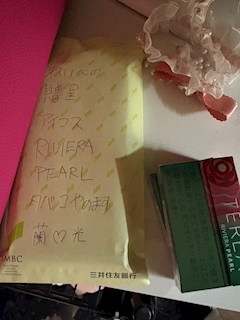 贈呈
アイコス
RIVIERA
PEARL
タバコやめます
蘭♡光
MBC
三井住友銀行
TEREA
RIVIERA PEARL